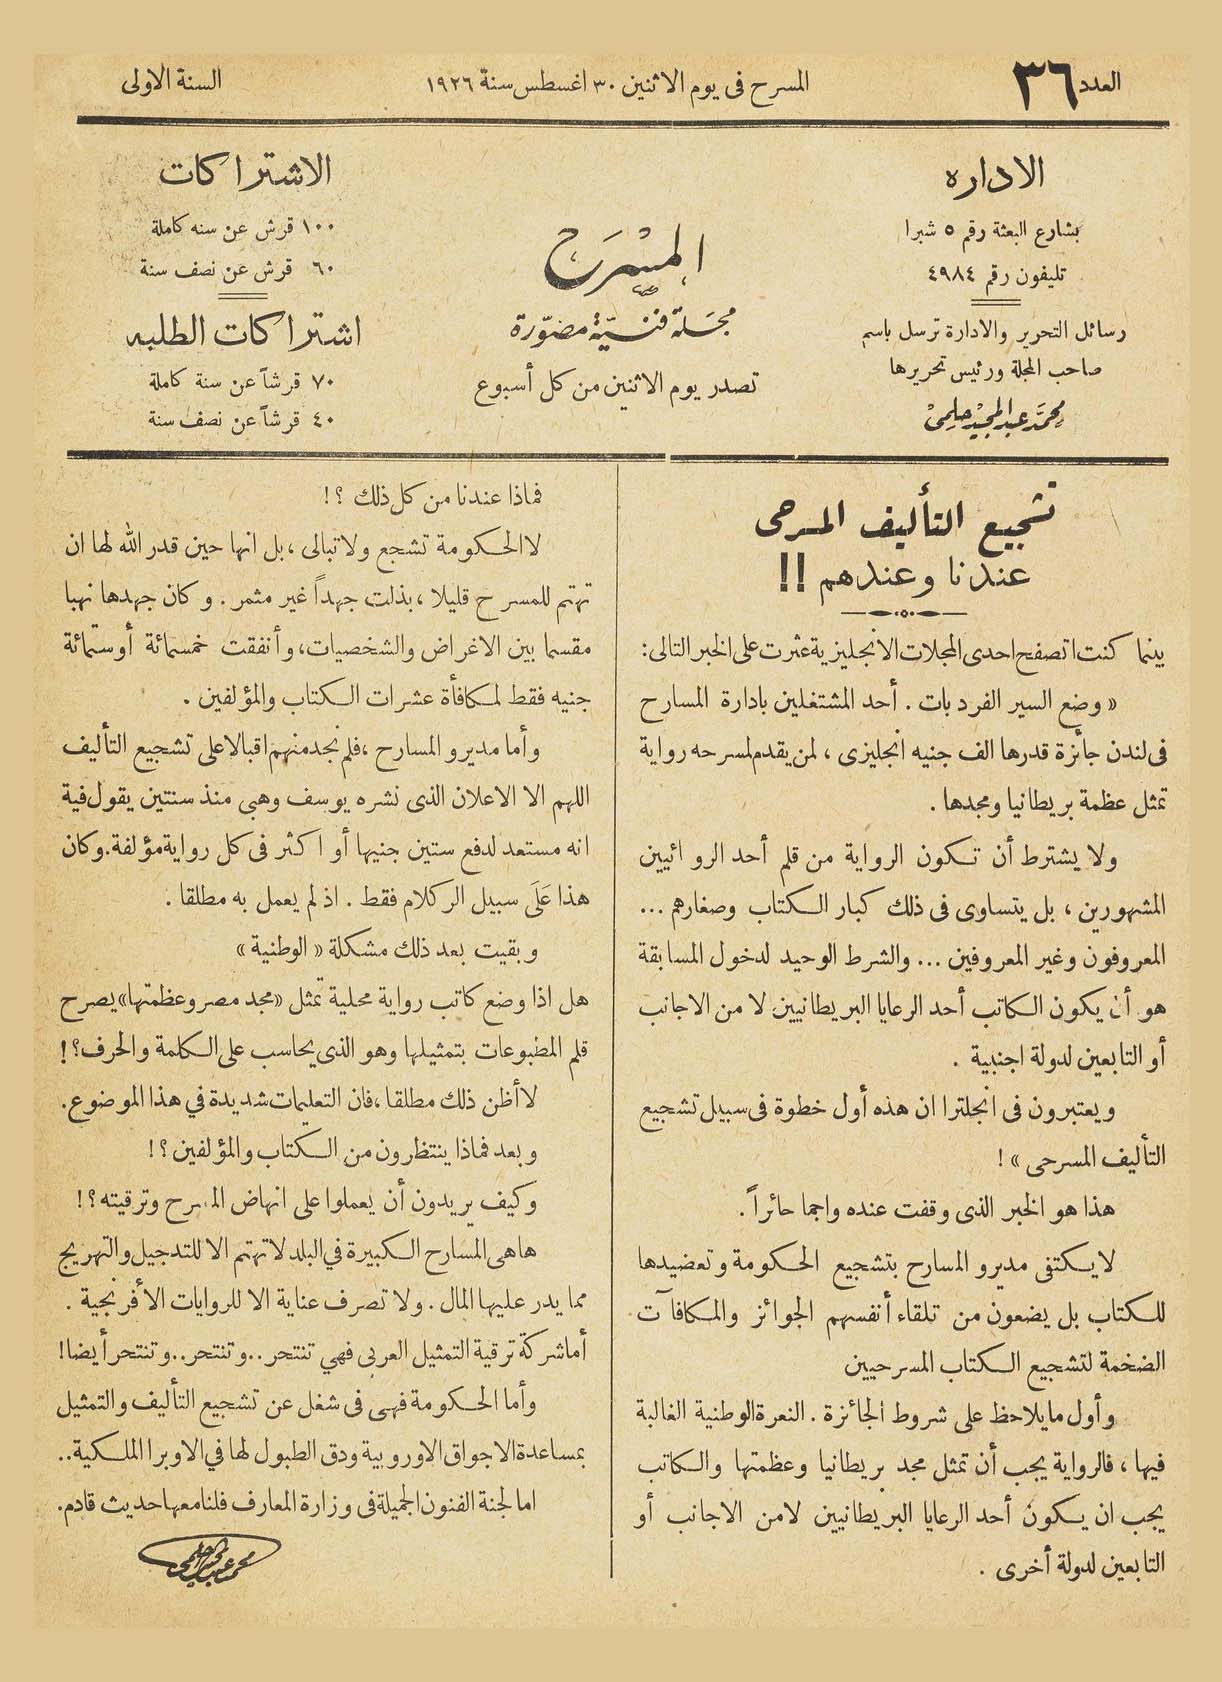 العدد ٣٦
المسرح فى يوم الاثنين ٣٠ اغسطس سنة ١٩٢٦
السنة الاولى
الاداره
بشارع البعثة رقم ٥ شبرا
تليفون رقم ٤٩٨٤
رسائل التحرير والادارة ترسل باسم
صاحب المجلة ورئيس تحريرها
محمد عبد المجيد حلمى
المسرح
مجلة فنية مصورة
تصدر يوم الاثنين من كل أسبوع
الاشتراكات
١٠٠ قرش عن سنه كاملة
٦٠ قرش عن نصف سنة
اشتراكات الطلبه
٧٠ قرشاً عن سنة كاملة
٤٠ قرشاً عن نصف سنة
تشجيع التأليف المسرحى
عندنا وعندهم !!
بينما كنت اتصفح احدى المجلات الانجليزية عثرت على الخبر التالى:
« وضع السير الفرد بات . أحد المشتغلين بادارة المسارح
فى لندن جأئزة قدرها الف جنيه انجليزى ، لمن يقدم لمسرحه رواية
تمثل عظمة بريطانيا ومجدها .
ولا يشترط أن تكون الرواية من قلم أحد الروائيين
المشهورين ، بل يتساوى فى ذلك كبار الكتاب وصغارهم ...
المعروفون وغير المعروفين ... والشرط الوحيد لدخول المسابقة
هو أن يكون الكاتب أحد الرعايا البريطانيين لا من الاجانب
أو التابعين لدولة اجنبية .
ويعتبرون فى انجلترا ان هذه أول خطوة فى سبيل تشجيع
التأليف المسرحى » !
هذا هو الخبر الذى وقفت عنده واجما حائراً .
لا يكتفى مديرو المسارح بتشجيع الحكومة وتعضيدها
للكتاب بل يضعون من تلقاء أنفسهم الجوائز والمكافآت
الضخمة لتشجيع الكتاب المسرحيين
وأول ما يلاحظ على شروط الجائزة . النعرة الوطنية الغالبة
فيها ، فالرواية يجب أن تمثل مجد بريطانيا وعظمتها والكاتب
يجب ان يكون أحد الرعايا البريطانيين لا من الاجانب أو
التابعين لدولة أخرى .
فماذا عندنا من كل ذلك ؟!
لا الحكومة تشجع ولا تبالى ، بل انها حين قدر الله لها ان
تهتم للمسرح قليلا ، بذلت جهداً غير مثمر . وكان جهدها نهبا
مقسما بين الاغراض والشخصيات، وأنفقت خمسمائة أو ستمائة
جنيه فقط لمكافأة عشرات الكتاب والمؤلفين .
وأما مديرو المسارح ، فلم نجد منهم اقبالا على تشجيع التأليف
اللهم الا الاعلان الذى نشره يوسف وهبى منذ سنتين يقول فية
انه مستعد لدفع ستين جنيها أو اكثر فى كل رواية مؤلفة. وكان
هذا عَلَى سبيل الركلام فقط . اذ لم يعمل به مطلقا .
وبقيت بعد ذلك مشكلة « الوطنية »
هل اذا وضع كاتب رواية محلية تمثل «مجد مصر وعظمتها» يصرح
قلم المطبوعات بتمثيلها وهو الذى يحاسب على الكلمة والحرف؟!
لا أظن ذلك مطلقا ، فان التعليمات شديدة في هذا الموضوع.
وبعد فماذا ينتظرون من الكتاب والمؤلفين ؟!
وكيف يريدون أن يعملوا على انهاض المسرح وترقيته ؟!
هاهى المسارح الكبيرة في البلد لا تهتم الا للتدجيل والتهريج
مما يدر عليها المال . ولا تصرف عناية الا للروايات الأفرنجية .
أما شركة ترقية التمثيل العربى فهي تنتحر .. وتنتحر.. وتنتحر أيضا!
وأما الحكومة فهى فى شغل عن تشجيع التأليف والتمثيل
بمساعدة الاجواق الاوروبية ودق الطبول لها في الاوبرا الملكية..
اما لجنة الفنون الجميلة فى وزارة المعارف فلنا معها حديث قادم.
محمد عبد المجيد حلمى